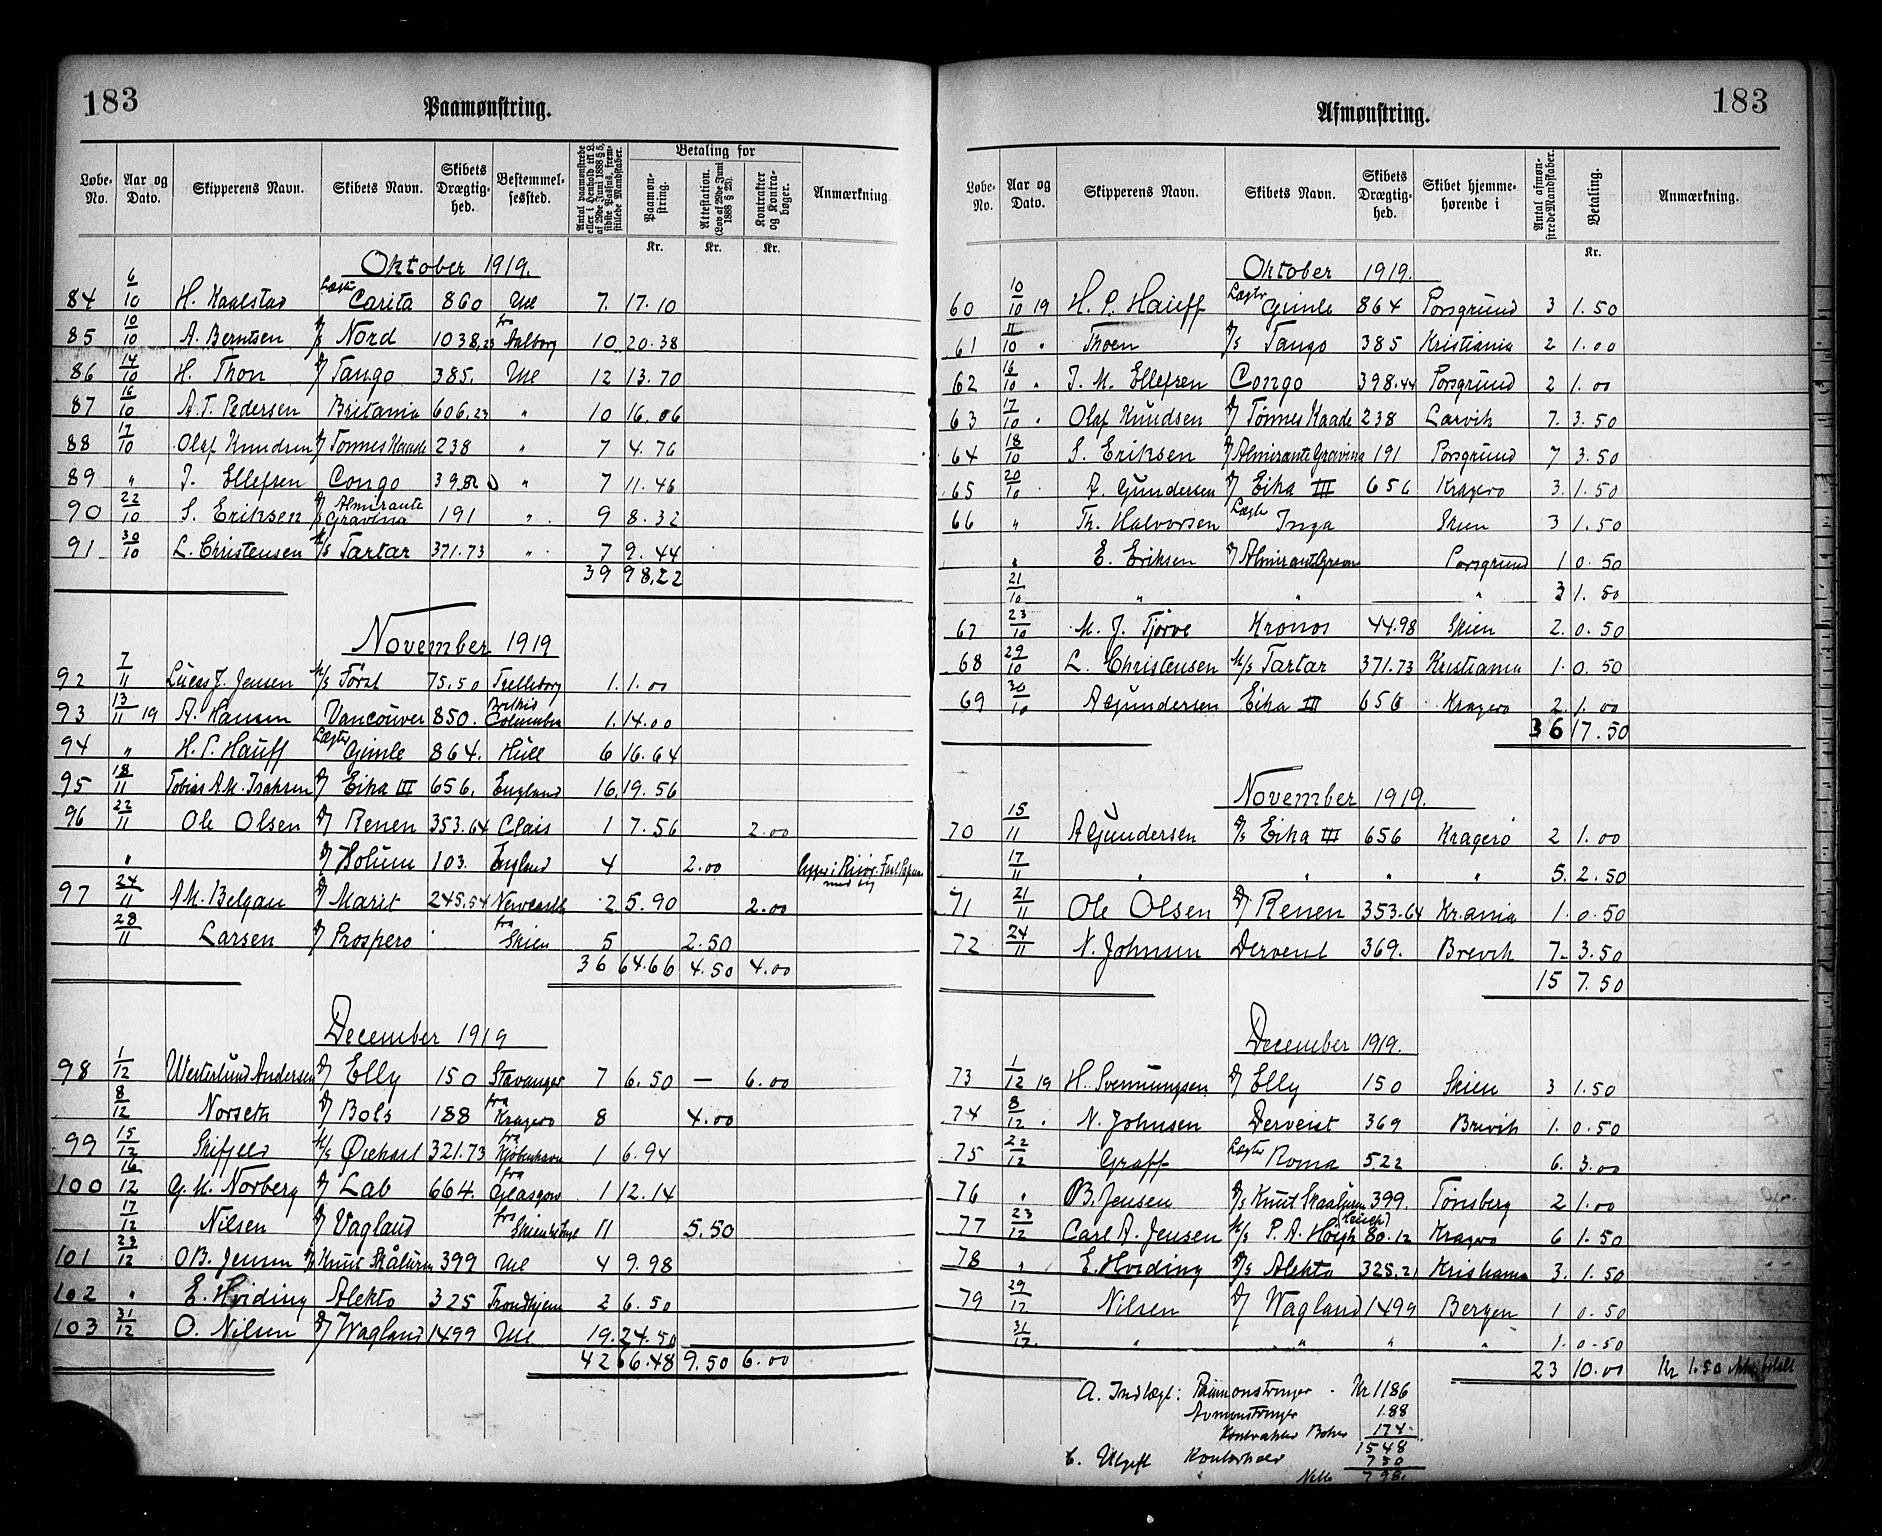 183
Paamønstring.
Løbe-No.
Aar og Dato.
Skipperens Navn.
Skibets Navn.
Skibets Drægtighed.
Bestemmelsessted.
Antal paamønstrede eller i Henhold til L. af 29de Juni 1888 § 5, sidste Passus, fremstillede Mandskaber.
Betaling for
Paamønstring.
Attestation. (Lov af 29de Juni 1888 § 25).
Kontrakter og Kontrabøger.
Anmærkning.
Kr. Kr. Kr.
Oktober 1919.
84 6/10 H. Kaalstad Lægter Carita 860 Utl 7. 17.10
85 10/10 A. Berntsen D/S Nord 1038,23 fra Aalborg 10 20.38
86 14/10 H. Thon D/ Tango 385. Utl 12 13.70
87 16/10 A.T. Pedersen Britania 606.23 " 10 16.06
88 17/10 Olaf Knudsen D/ Tønnes Kaade 238 " 7 4.76
89 " J. Ellefsen Congo " 7 11.46
90 22/10 S. Eriksen D/S Almirante Gravina 191 " 9 8.32
91 30/10 L. Christensen M/S Tartar 371.73 " 7 9.44
39 98,22
November 1919
92 7/11 Lucas J. Jensen M/S Først 75.50 Trelleborg 1. 1.00
93 13/11 19 A. Hansen Vancouver 850. Columbia 1. 14.00
94 " H.P. Hauff Lægter Gimle 864. Hull 6 16.64
95 18/11 Tobias A.M. Isaksen D/ Eika III 656. England 16. 19.56
96 22/11 Ole Olsen D/ Renen 353.64 Clais 1 7.56 2.00
" D/ Holum 103. England 4 2.00
97 24/11 M. Belgau D/ Marit 245.54 Newcastle 2 5.90 2.00
28/11 Larsen D/ Prospero fra Skien 5 2.50
36 64.66 4.50 4.00
December 1919
98 1/12 Westerlund Andersen D/ Elly 150 Stavanger 7 6.50 — 6.00
8/12 Norseth D/ Bols 188 fra Kragerø 8 4.00
99 15/12 Skifjeld M/S 321.73 fra Kjøbenhavn 1 6.94
100 16/12 G.M. Norberg D/ Lab 664. fra Glasgow 1 12.14
17/12 Nilsen D/ Vagland fra 11 5.50
101 23/12 O.B. Jensen D/S Knut Skålurn 399 Utl 4 9.98
102 " E. Hviding Alekto 325 Trondhjem 2 6.50
103 31/12 O. Nilsen D/ Wagland 1499 Utl 19. 24.50
42 66.48 9.50 6.00
183
Afmønstring.
Løbe-No.
Aar og Dato.
Skipperens Navn.
Skibets Navn.
Skibets Drægtighed.
Skibet hjemmehørende i
Antal afmønstrede Mandskaber.
Betaling.
Anmærkning.
Kr.
Oktober 1919.
60 10/10 19 H.P. Hauff Lægter Gimle 864 Porsgrund 3 1.50
61 11/10 " Thoen D/S Tango 385 Kristiania 2 1.00
62 16/10 " J.M. Ellefsen Congo 398.44 Porsgrund 2 1.00
63 17/10 " Olaf Knudsen D/ Tønnes Kaade 238 Larvik 7. 3.50
64 18/10 S. Eriksen D/ Almirante Gravina 191 Porsgrund 7 3.50
65 20/10 A. Gundersen D/ Eika III 656 Kragerø 3. 1.50
66 " Th. Halvorsen Lægter Inga Skien 3 1.50
" E. Eriksen D/ Almirante Gravina Porsgrund 1 0.50
21/10 " " " 3 1.50
67 23/10 M.J. Tjørve Kronos 44.98 Skien 2. 0.50
68 29/10 L. Christensen M/S Tartar 371.73 Kristiania 1. 0.50
69 30/10 A Gundersen Eika III 656 Kragerø 2. 1.00
36 17.50
November 1919.
70 15/11 A Gundersen D/S Eika III 656 Kragerø 2 1.00
17/11 " " " " 5. 2.50
71 21/11 Ole Olsen D/ Renen 353.64 Kr.ania 1. 0.50
72 24/11 N. Johnsen Dervent 369. Brevik 7. 3.50
15 7.50
December 1919.
73 1/12 19 H. Svennungsen D/ Elly 150 Skien 3 1.50
74 8/12 " N. Johnsen Dervent 369 Brevik 1. 0.50
75 22/12 Graff Lægter Roma 522 6. 3.00
76 " O B. Jensen D/S Knut Skaaluren 399. Tønsberg 2 1.00
77 23/12 Carl A. Jensen M/S P.A. Høigh 80.12 Kragerø 6 1.50
78 " E. Hviding D/S Alekto 325,21 Kristiania 3. 1.50
79 29/12 Nilsen D/ Wagland 1499 Bergen 1 0.50
31/12. " " " " 1. 0.50
23 10.00 Kr 1.50 ikke betalt
A. Indtægt: Paamønstringer. Kr 1186
Avmønstringer 188
Kontrakter Bøker 174
1548
b. Utgift Kontorhold 750
Netto 798.